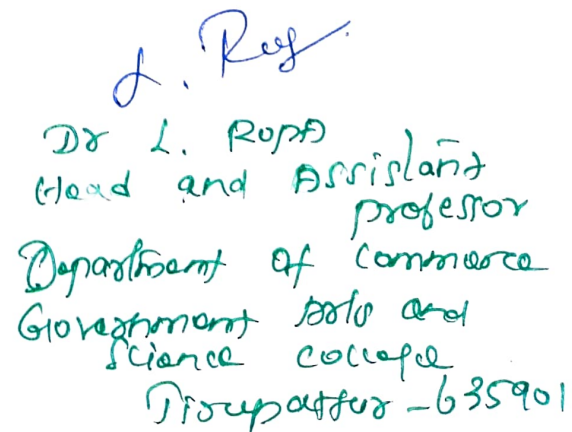 L. Ruf
Dr L. ROPA
Head and Assistant
professor
Department of Commerce
Government Arts and
Science College
Tirupattur - 635901